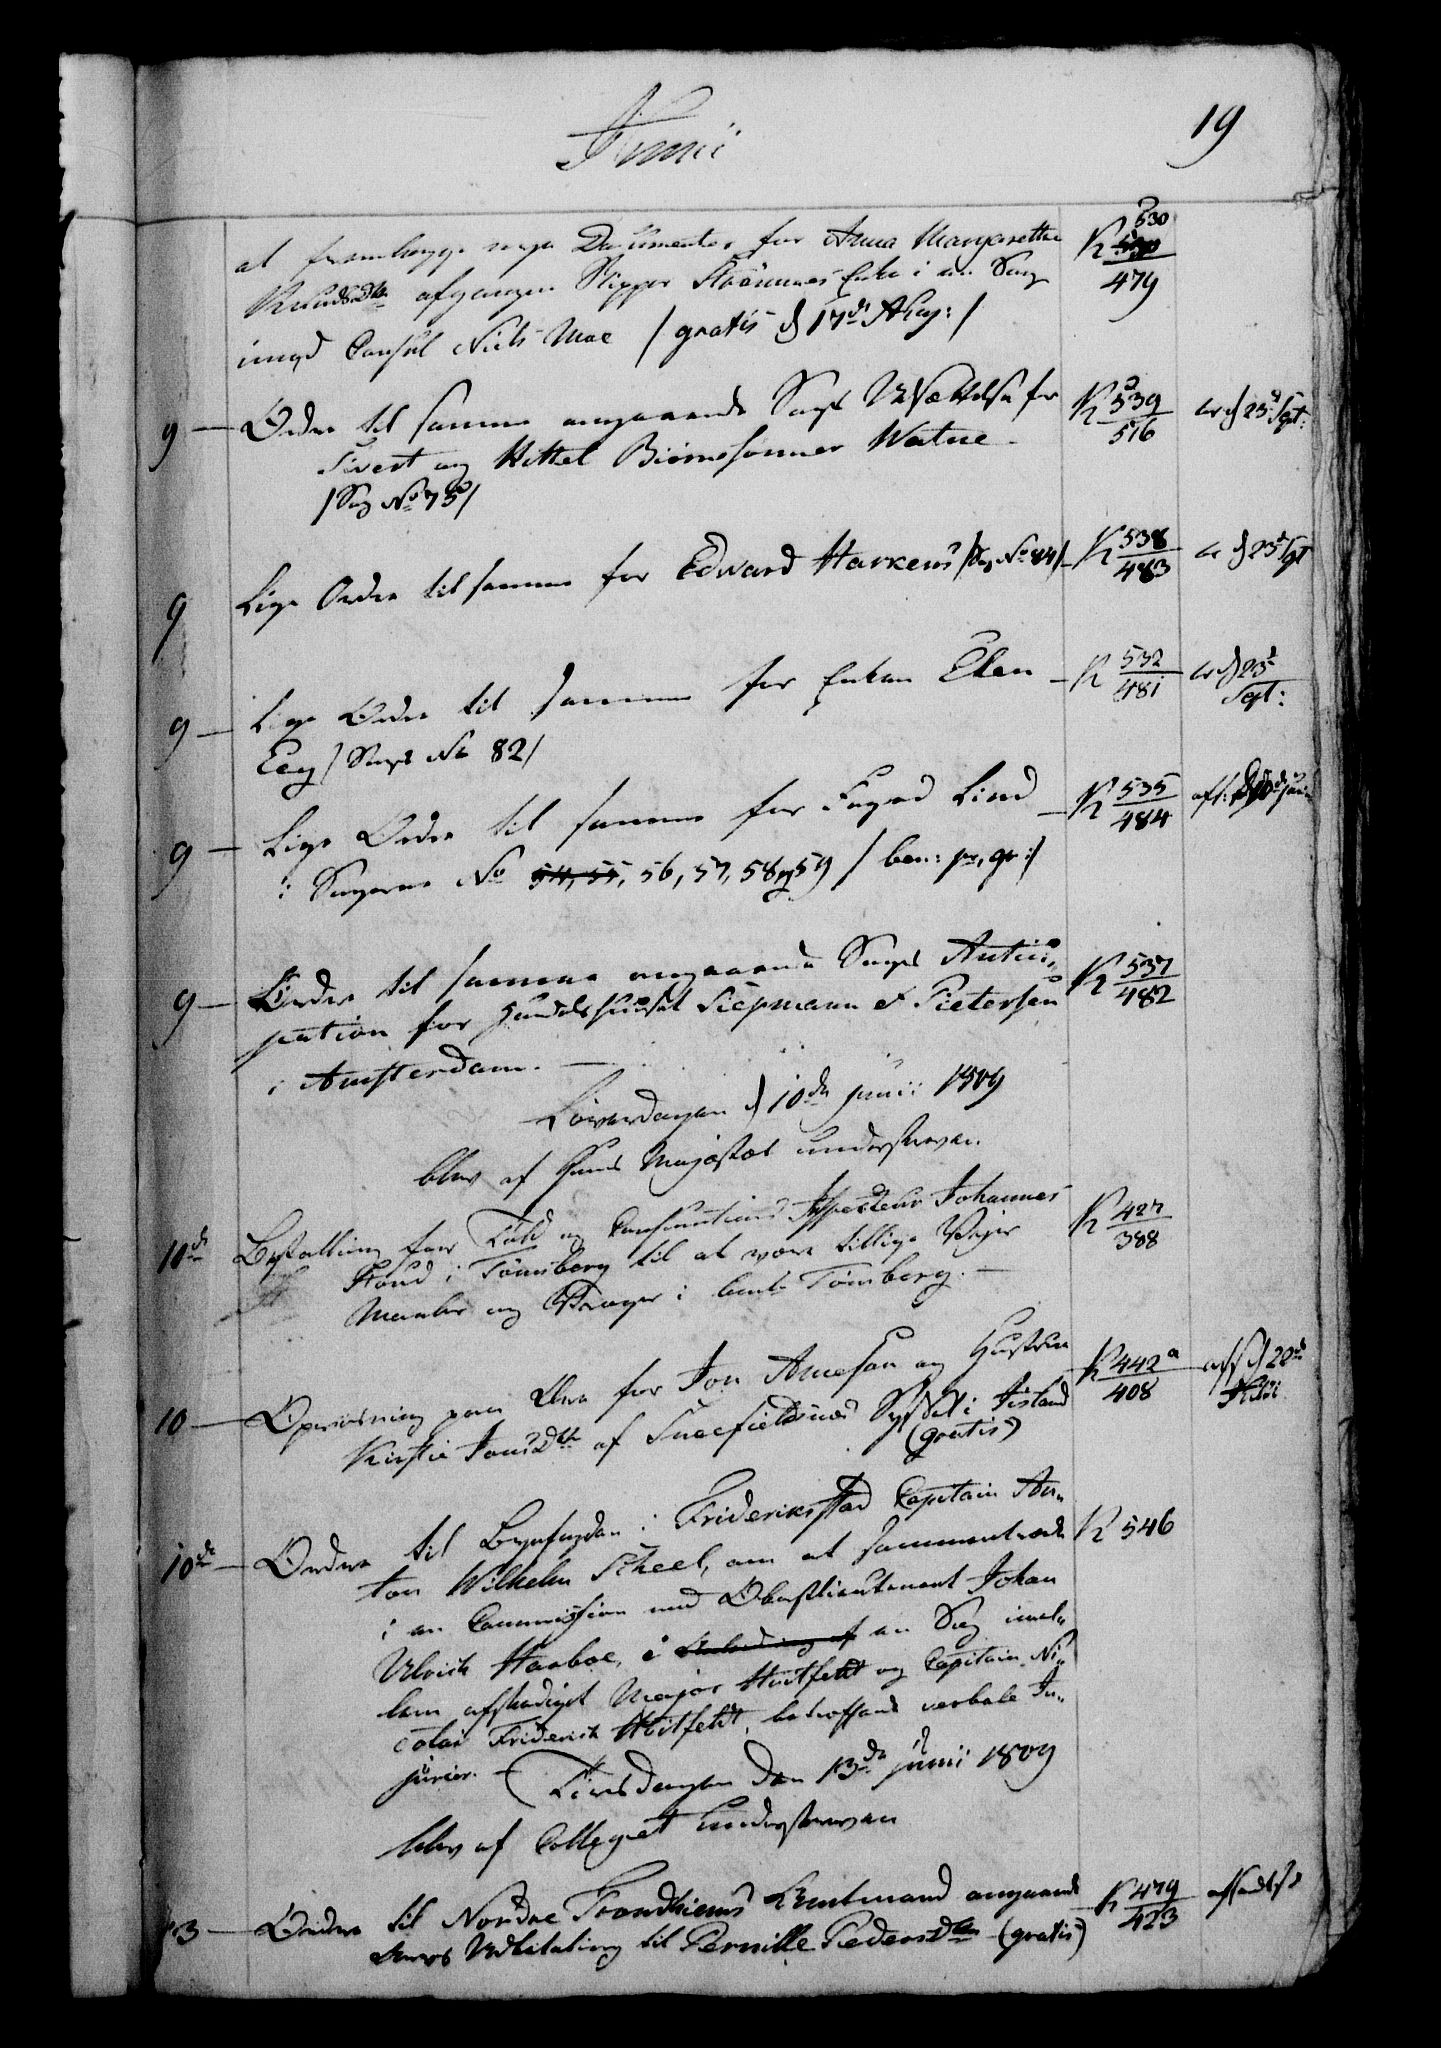 Junii
19
at fremlægge nye Documenter for Anna Margarethe
Knudsdtr afgangne Skipper Enke i en Sag
imod Consul Niels Moe / gratis d 17de Aug: /
K 530
479
9 — Ordre til samme angaaende Sags Udsættelse for
Sivert og Kittel Biørnssønner Watne
/ Sag No 75 /
K 539
516
d 23d Sept:
9 Lige Ordre til samme for Edward Harkens / Sag No 84 /
K 538
483
d 23d Sept
9 — Lige Ordre til samme for Enken Elen
Eeg / Sags No 82 /
K 532
481
d 23d
Sept:
9 — Lige Ordre til samme for Foged Lind
i Sagerne No 54, 55, 56, 57, 58 og 59 / ben: pr, gr: /
K 535
484
afs: d 10de Junii
9 — Ordre til samme angaaende Sags Antici-
pation for Handelshuset Siepmann & Pietersen
i Amsterdam. —
K 537
482
Løverdagen d 10de Junii 1809
blev af Hans Majestæt underskreven.
10de Bestalling for Told og Consumtions Inspecteur Johannes
Stoud i Tønsberg til at være tillige Vejer
Maaler og Vrager i bemte Tønsberg. —
K 427
388
10 — Opreisning paa Ære for Jon Arnesen og Hustrue
Kirstie Jonsdtr af Sneefieldsnæs Syssel i Island
(gratis)
K 442a
408
afs d 22de
Julii
10de — Ordre til Byefogden i Frideriksstad Capitain An-
ton Wilhelm Scheel, om at sammentræde
i en Commission med Oberstlieutenant Johan
Ulrich Haxboe, i Anledning af en Sag imel-
lem afskediget Major Huitfeldt og Capitain Ni-
colai Friderich Huitfeldt, betreffende verbale In-
jurier. —
K 546
Tirsdagen den 13de Junii 1809
blev af Collegiet underskreven
13 — Ordre til Nordre Trondhiems Amtmand angaaende
Arvs Udbetaling til Pernille Pedersdtr — (gratis)
K 479
423